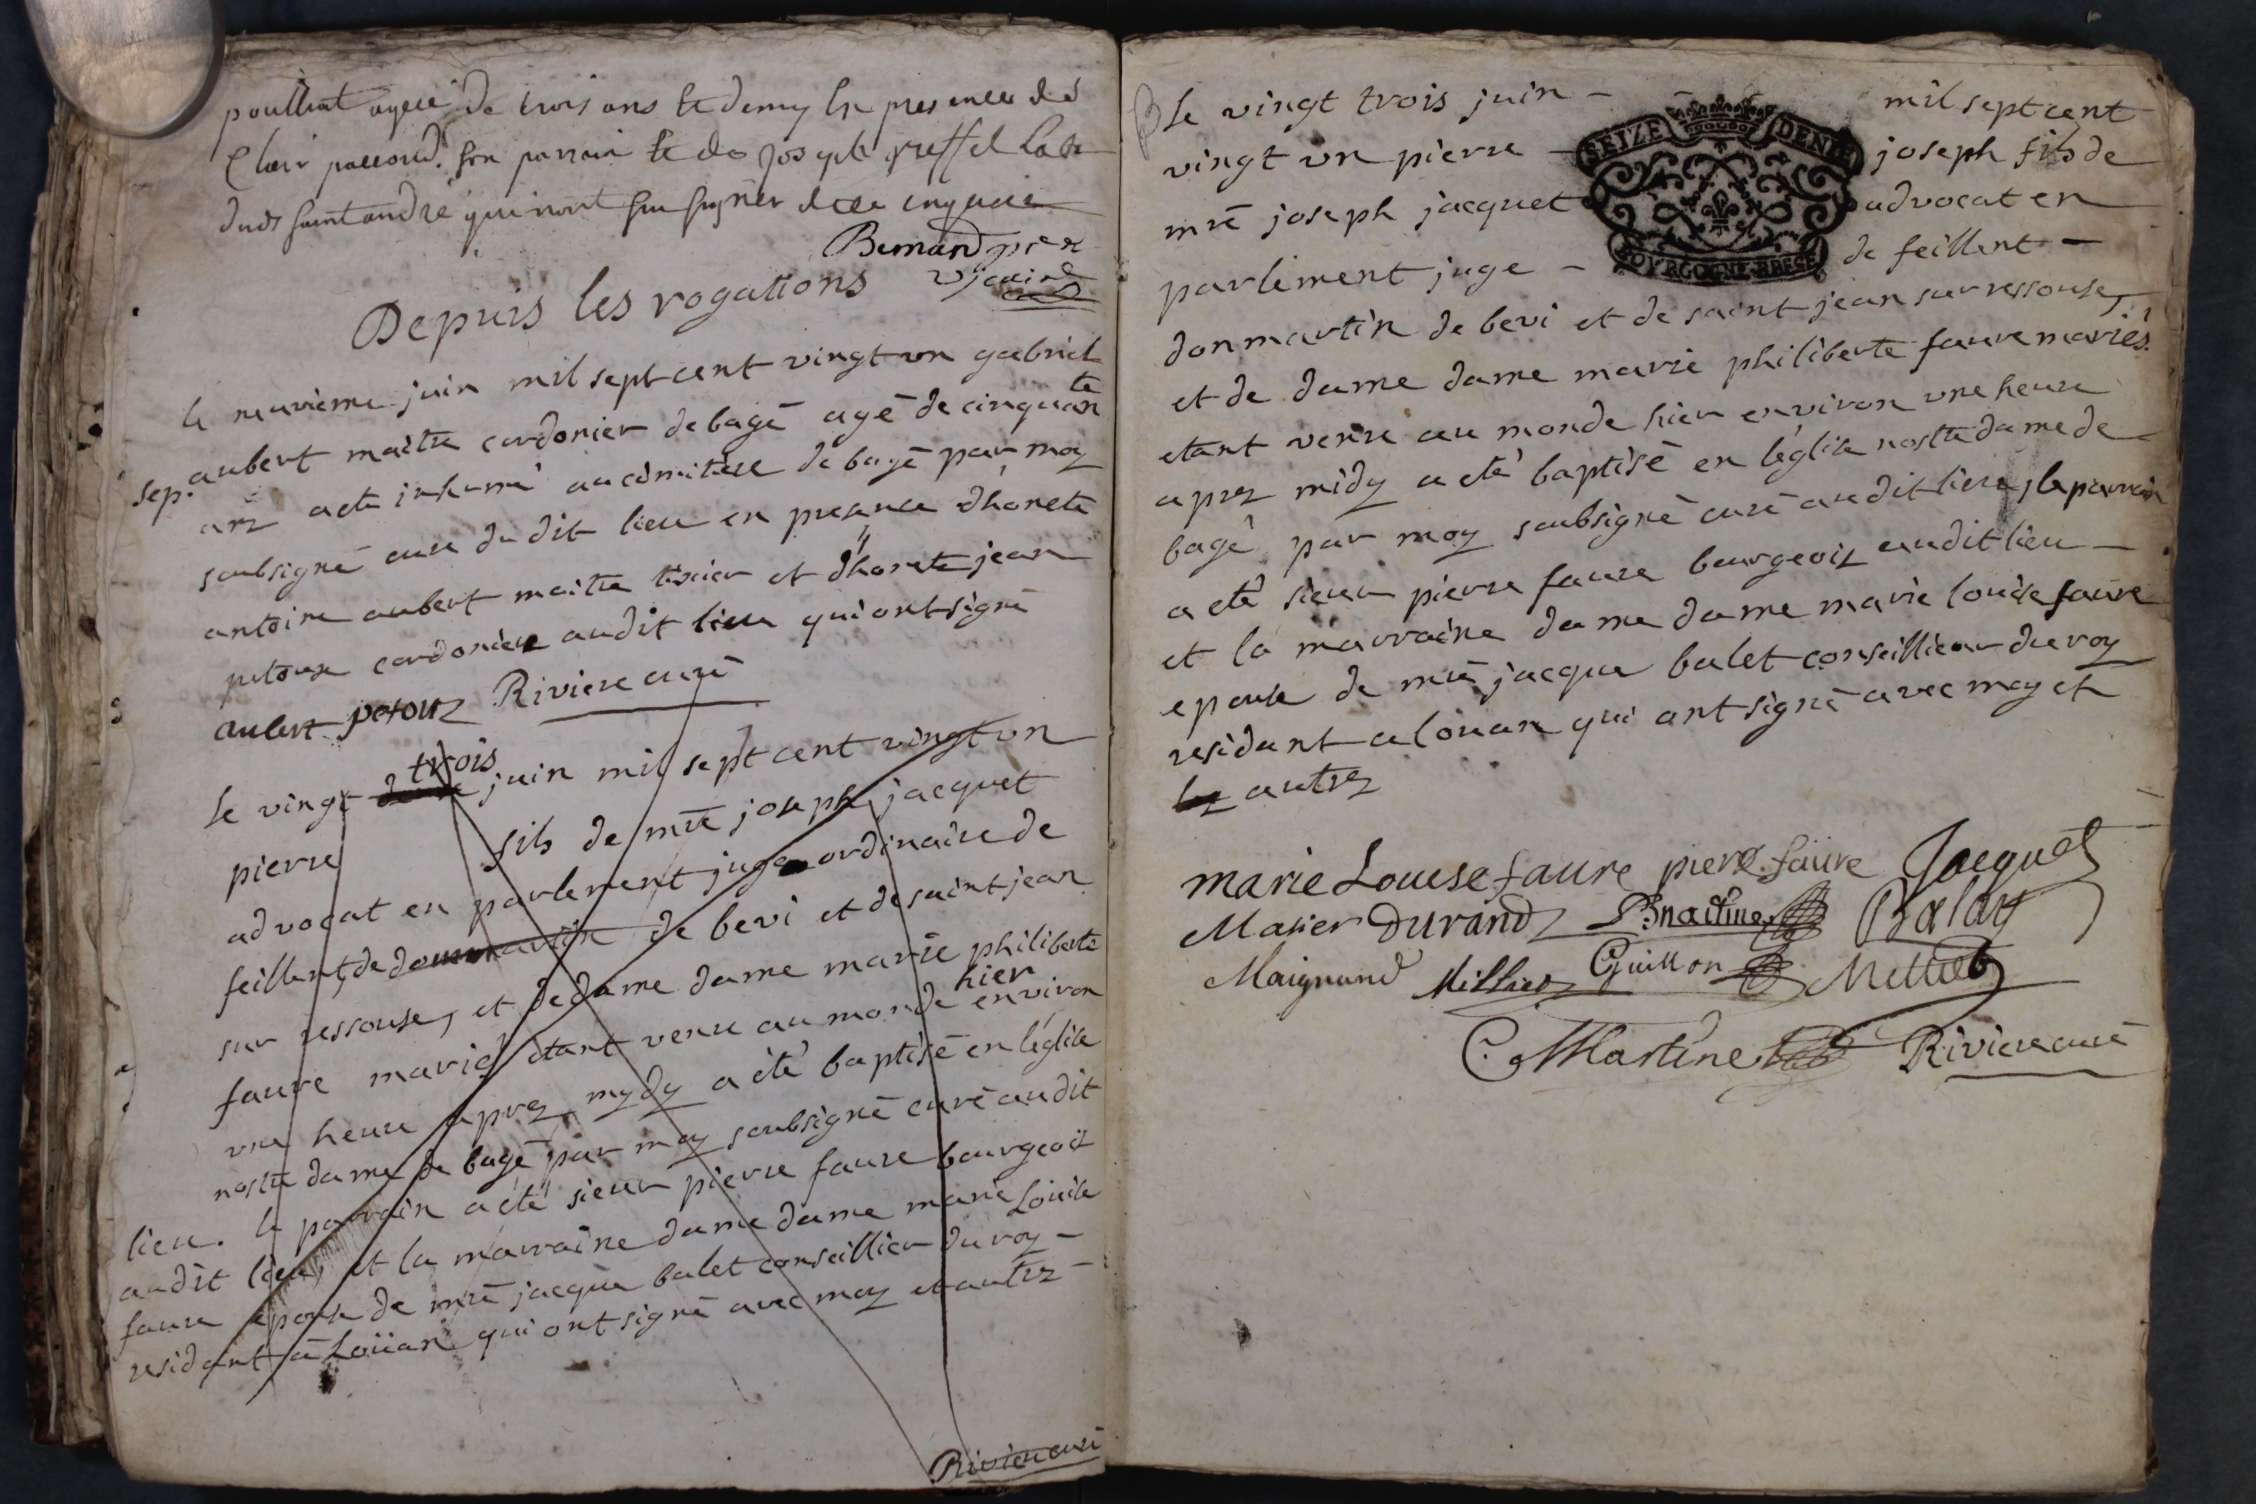 agee de trois ans et demy en presence de
Clair son parrain et de joseph greffet
dudt saint andré qui n'ont su signer de ce enquis
Bernard ptre
vicaire
Depuis les rogations
le neuvieme juin mil sept cent vingt un gabriel
sep. aubert maitre cordonier de bagé agé de cinquante
ans a eté inhumé au cimitiere de bagé par moy
soubsigné curé du dit lieu en presence d'honete
antoine aubert maitre tixier et d'honete jean
putoux cordonier audit lieu qui ont signé
aubert putouz Riviere curé
le vingt trois juin mil sept cent vingt un
pierre fils de mre joseph jacquet
advocat en parlement juge ordinaire de
feillent, de dommartin de bevi et de saint jean
sur ressouse, et de dame dame marie philiberte
faure mariés etant venu au monde hier environ
une heure aprez mydy a été baptisé en l'église
nostre dame de bagé par moy soubsigné curé audit
lieu. le parrain a eté sieur pierre faure bourgeois
audit lieu, et la marraine dame dame marie Louise
faure epouse de mre jacque balet conseillier du roy -
residant à Loüan qui ont signé avec moy et autrez -
Riviere curé
B le vingt trois juin - mil sept cent
vingt un pierre - joseph fils de
mre joseph jacquet advocat en
parlement juge - de feillent -
donmartin de bevi et de saint jean sur ressouse,
et de dame dame marie philiberte faure mariés.
etant venu au monde hier environ une heure
aprez midy a eté baptisé en l'église nostre dame de
bagé par moy soubsigné curé audit lieu, le parrain
a eté sieur pierre faure bourgeois audit lieu -
et la marraine dame dame marie louise faure
epouse de mre jacque balet conseillier du roy
residant a louan qui ont signé avec moy et
les autrez
SEIZE DENIE
BOVRGOGNE BRESSE
marie Louise faure pierre faure Jacquet
Matier Durand Balay
Maignand Guillon
C. Martine Riviere curé